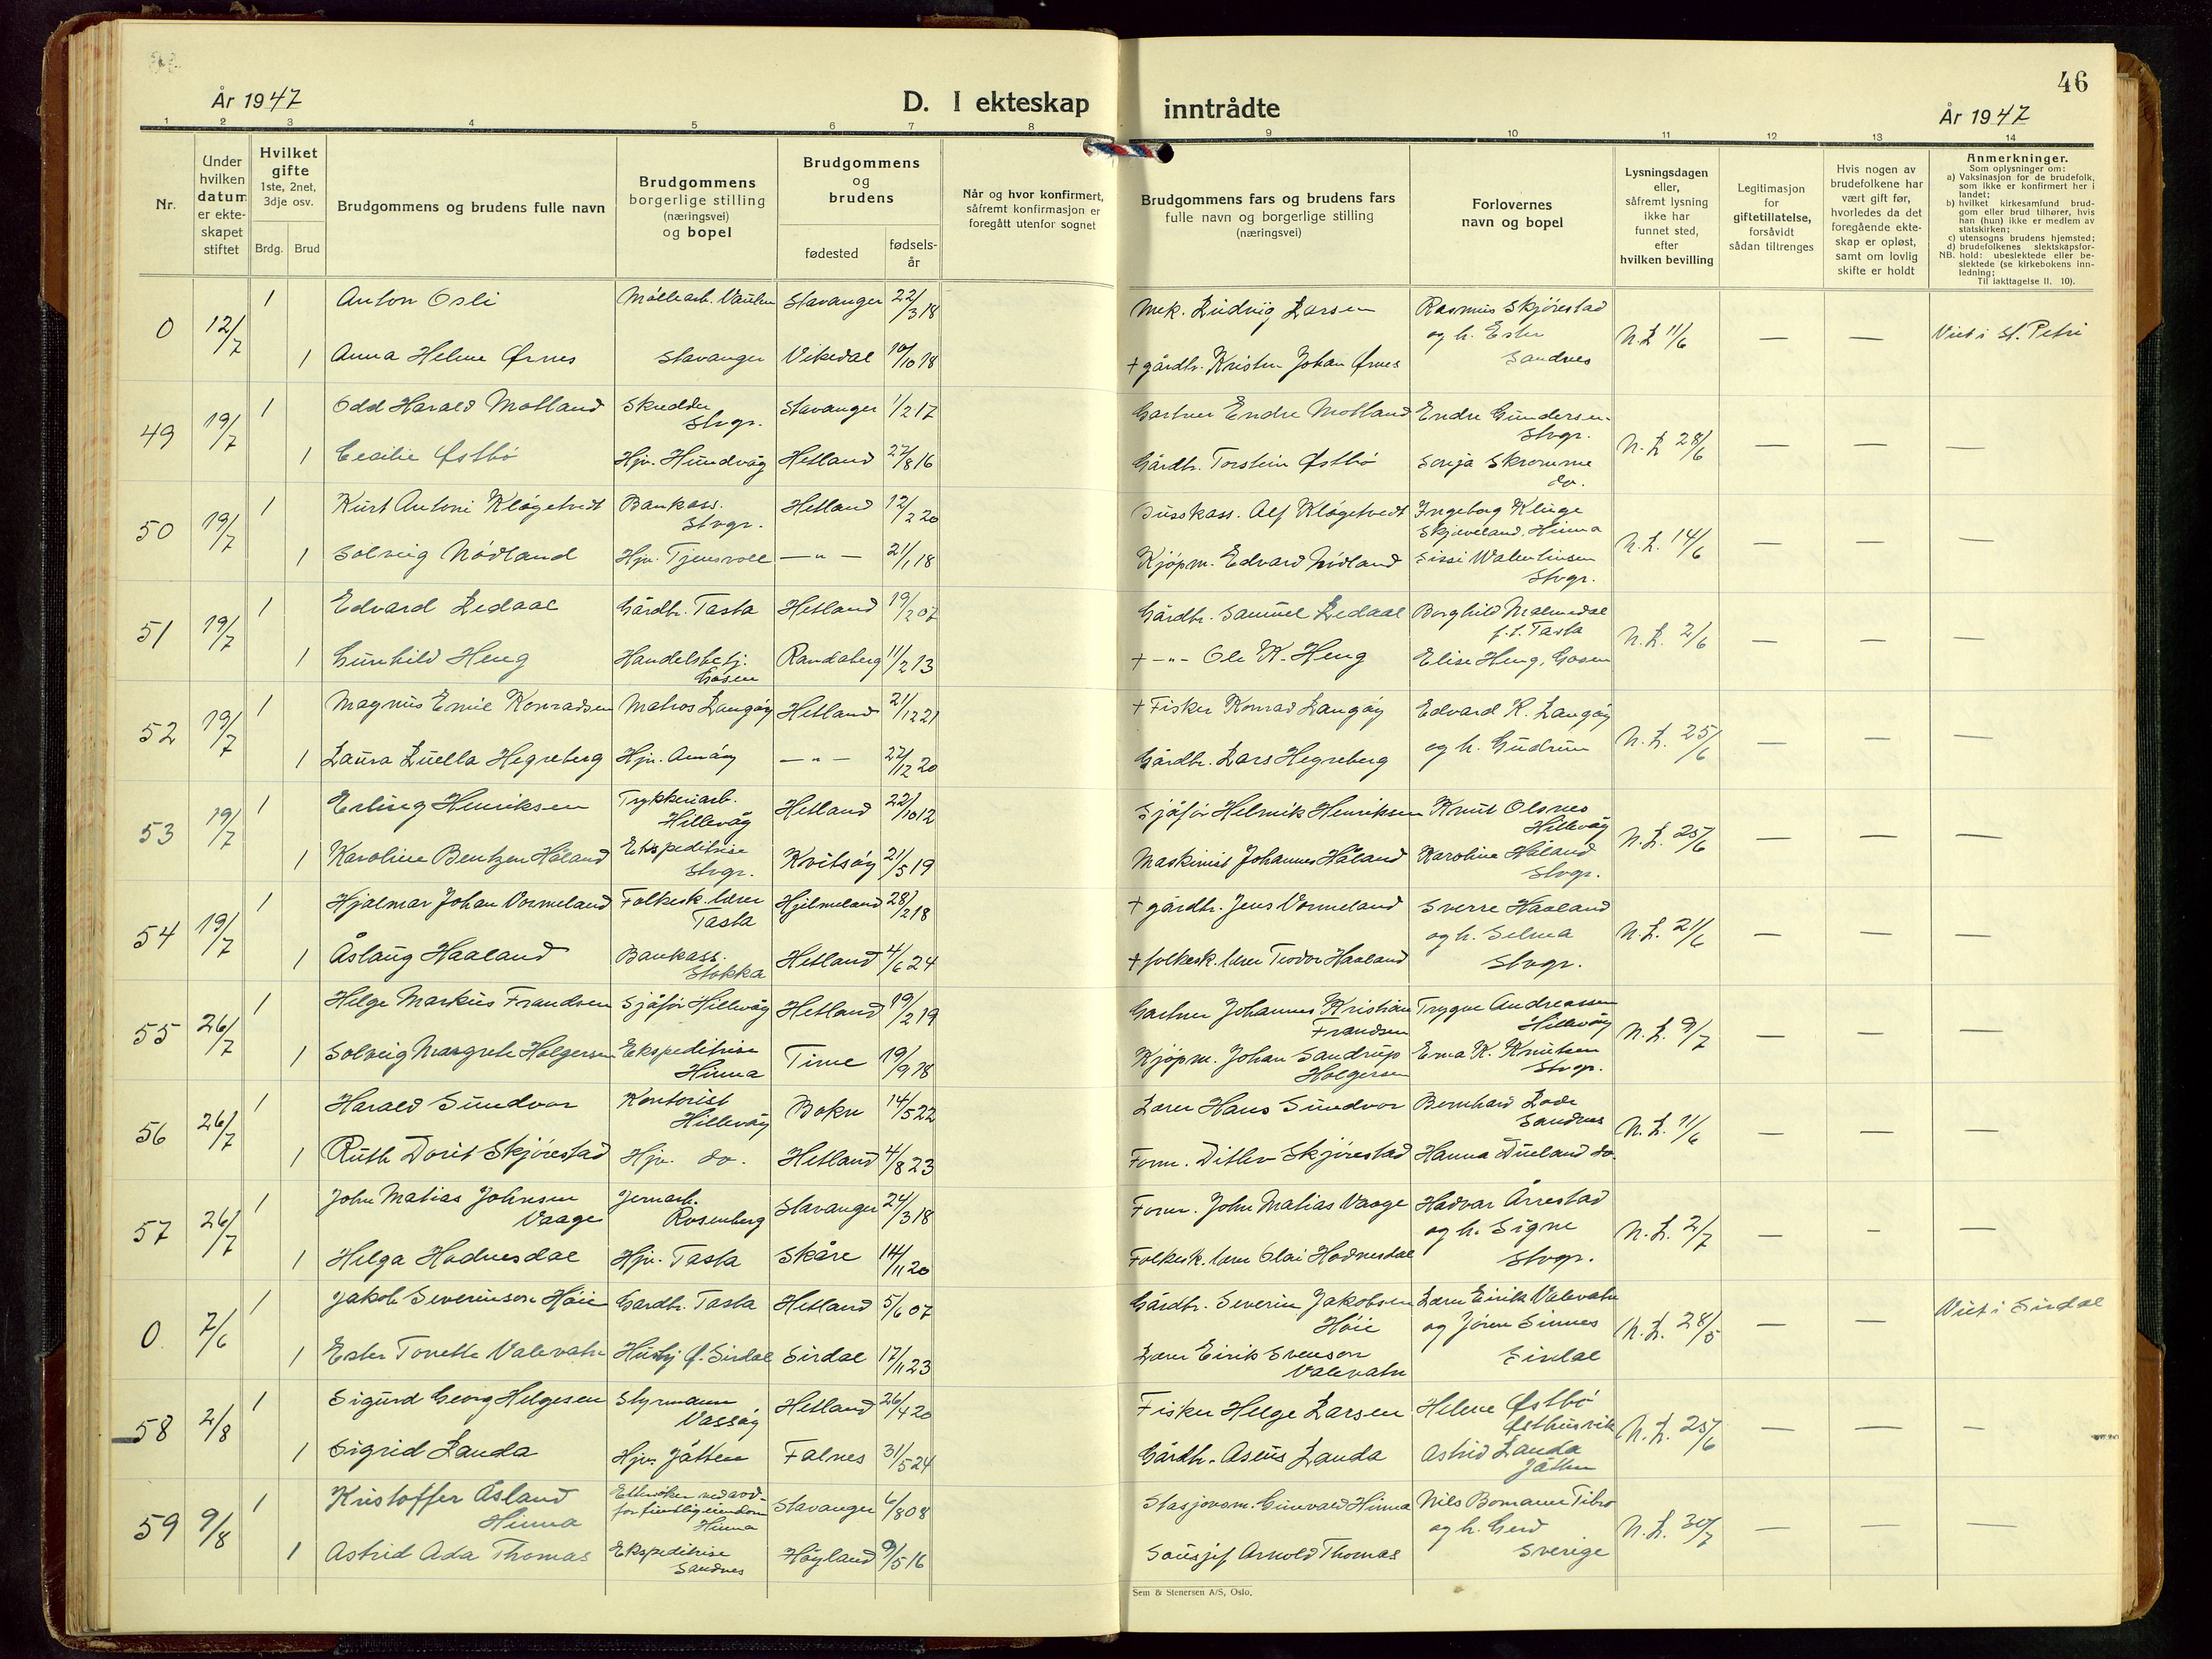 År 1947
D. I ekteskap inntrådte
År 1947
46
1 2 3 4 5 6 7 8 9 10 11 12 13 14
Nr.
Under hvilken datum er ekteskapet stiftet
Hvilket gifte
1ste, 2net, 3dje osv.
Brdg. Brud
Brudgommens og brudens fulle navn
Brudgommens borgerlige stilling (næringsvei) og bopel
Brudgommens og brudens
fødested
fødsels-år
Når og hvor konfirmert, såfremt konfirmasjon er foregått utenfor sognet
Brudgommens fars og brudens fars fulle navn og borgerlige stilling (næringsvei)
Forlovernes navn og bopel
Lysningsdagen eller, såfremt lysning ikke har funnet sted, efter hvilken bevilling
Legitimasjon for giftetillatelse, forsåvidt sådan tiltrenges
Hvis nogen av brudefolkene har vært gift før, hvorledes da det foregående ekteskap er opløst, samt om lovlig skifte er holdt
Anmerkninger.
Som oplysninger om:
a) Vaksinasjon for de brudefolk, som ikke er konfirmert her i landet;
b) hvilket kirkesamfund brudgom eller brud tilhører, hvis han (hun) ikke er medlem av statskirken;
c) utensogns brudens hjemsted;
d) brudefolkenes slektskapsforhold: ubeslektede eller beslektede (se kirkebokens innledning;
NB.
Til iakttagelse II. 10).
0 12/7 1 Anton Osli Møllearb. Vaulen Stavanger 22/3 18 Mek. Ludvig Larsen Rasmus Skjørestad og h. Ester Sandnes N.L. 11/6 — — Viet i St. Petri
1 Anna Helene Ørnes Stavanger Vikedal 10/10 18 + gårdbr. Kristen Johan Ørnes
49 19/7 1 Odd Harald Motland Skredder Stvgr. Stavanger 1/2 17 Gartner Endre Motland Endre Gundersen Stvgr. N.L. 28/6 — — —
1 Cecilie Østbö Hjv. Hundvåg Hetland 27/8 16 Gårdbr. Torstein Østbö Sonja Skromme do.
50 19/7 1 Kurt Antoni Kløgetvedt Bankass. Stvgr. Hetland 12/2 20 Busskass. Alf Kløgetvedt Ingeborg Kluge Skjæveland, Hinna N.L. 14/6 — — —
1 Solveig Nødland Hjv. Tjensvoll — " — 21/1 18 Kjöpm. Edvard Nødland Sissi Walentinsen Stvgr.
51 19/7 1 Edvard Ledaal Gårdbr. Tasta Hetland 19/2 07 Gårdbr. Samuel Ledaal Borghild Malmedal f.L. Tasta N.L. 2/6 — — —
1 Gunhild Heng Handelsbetj. Gosen Randaberg 11/2 13 + — " — Ole K. Heng Elise Heng, Gosen
52 19/7 1 Magnus Emil Konradsen Matros Langöy Hetland 21/12 21 + Fisker Konrad Langöy Edvard K. Langöy og h. Gudrun N.L. 25/6 — — —
1 Laura Luella Hegreberg Hjv. Amöy — " — 27/12 20 Gårdbr. Lars Hegreberg
53 19/7 1 Erling Henriksen Trykkeriarb. Hillevåg Hetland 22/10 12 Sjåför Helmik Henriksen Knut Olsnes Hillevåg N.L. 25/6 — — —
1 Karoline Bentzen Håland Ekspeditrise Stvgr. Kvitsöy 21/5 19 Maskinist Johannes Håland Karoline Håland Stvgr.
54 19/7 1 Hjalmar Johan Vormeland Folkesk.lærer Tasta Hjelmeland 28/2 18 + gårdbr. Jens Vormeland Sverre Haaland og h. Selma Stvgr. N.L. 21/6 — — —
1 Åslaug Haaland Bankass. Stokka Hetland 4/6 24 + folkesk. lærer Teodor Haaland
55 26/7 1 Helge Markus Frandsen Sjåför Hillevåg Hetland 19/2 19 Gartner Johannes Kristian Frandsen Trygve Andreassen Hillevåg N.L. 9/7 — — —
1 Solveig Margrete Holgersen Ekspeditrise Hinna Time 19/9 18 Kjöpm. Johan Sandrup Holgersen Erna K. Knutsen Stvgr.
56 26/7 1 Harald Sundvor Kontorist Hillevåg Bokn 14/5 22 Lærer Hans Sundvor Bernhard Lode Sandnes N.L. 11/6 — — —
1 Ruth Dorit Skjörestad Hjv. do. Hetland 4/8 23 Form. Ditlev Skjörestad Hanna Dueland do.
57 26/7 1 John Matias Johnsen Vaage Jernarb. Rosenberg Stavanger 24/3 18 Form. John Matias Vaage Hadvar Årrestad og h. Signe Stvgr. N.L. 2/7 — — —
1 Helga Hodnesdal Hjv. Tasta Skåre 14/11 20 Folkesk. lærer Olai Hodnesdal
0 7/6 1 Jakob Severinsen Höie Gardbr. Tasta Hetland 5/6 07 Gårdbr. Severin Jakobsen Höie Lærer Eirik Valevatn og Jören Sinnes Sirdal N.L. 28/5 — — Viet i Sirdal
1 Ester Tonette Valevatn Husbj. Ø. Sirdal Sirdal 17/11 23 Lærer Eirik Svenson Valevatn
58 2/8 1 Sigurd Georg Helgesen Styrmann Vassöy Hetland 26/4 20 Fisker Helge Larsen Helene Østbö Østhusvik N.L. 25/6 — — —
1 Sigrid Landa Hjv. Jåtten Falnes 31/5 24 Gårdbr. Aseus Landa Astrid Landa Jåtten
59 9/8 1 Kristoffer Åsland Hinna for fiendtlig eiendom Hinna Stavanger 6/8 08 Stasjonsm. Gunvald Hinna Nils Bomann Tibro og h. Gerd Sverige N.L. 30/7 — — —
1 Astrid Ada Thomas Ekspeditrise Sandnes Höyland 9/5 16 Arnold Thomas
Sem & Stenersen A/S, Oslo.